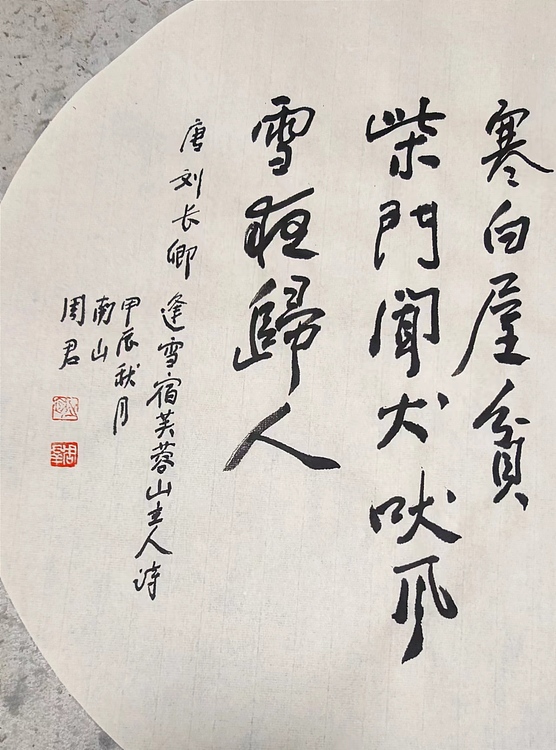 寒白屋貧
柴門聞犬吠风
雪夜歸人
唐刘长卿逢雪宿芙蓉山主人诗
甲辰秋月
南山
周君